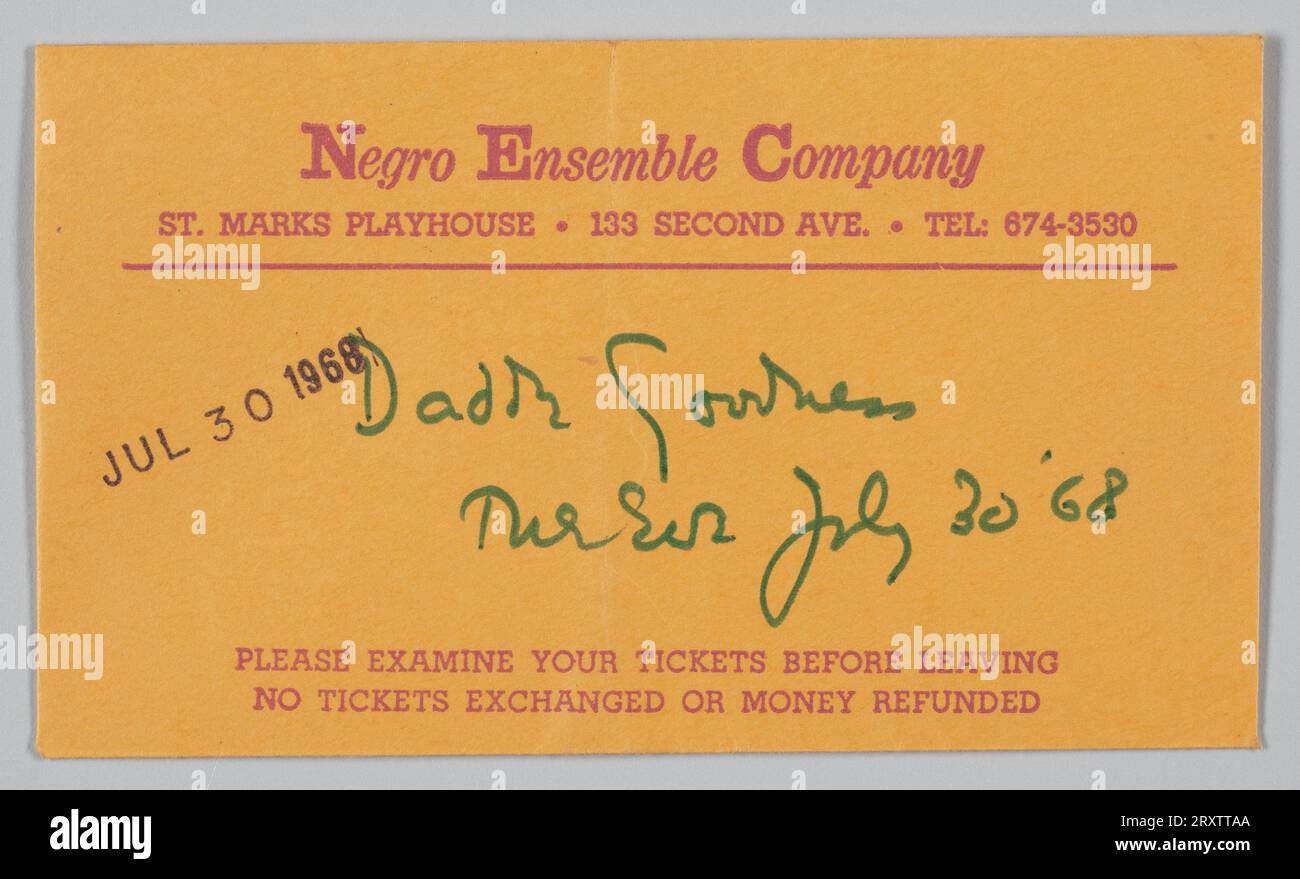 Negro Ensemble Company
ST. MARKS PLAYHOUSE • 133 SECOND AVE. • TEL: 674-3530
JUL 30 1968
Daddy Goodness
Tue Eve July 30 '68
PLEASE EXAMINE YOUR TICKETS BEFORE LEAVING
NO TICKETS EXCHANGED OR MONEY REFUNDED
alamy
Image ID: 2RXTTAA
www.alamy.com